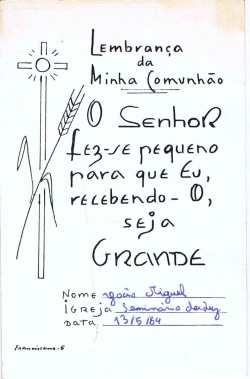 Lembrança
da
Minha Comunhão
O SENHOR
fez-se pequeno
para que Eu,
recebendo-O,
seja
GRANDE
Nome João Miguel
Igreja Seminário da Luz
Data 13/5/84
Franciscana-6